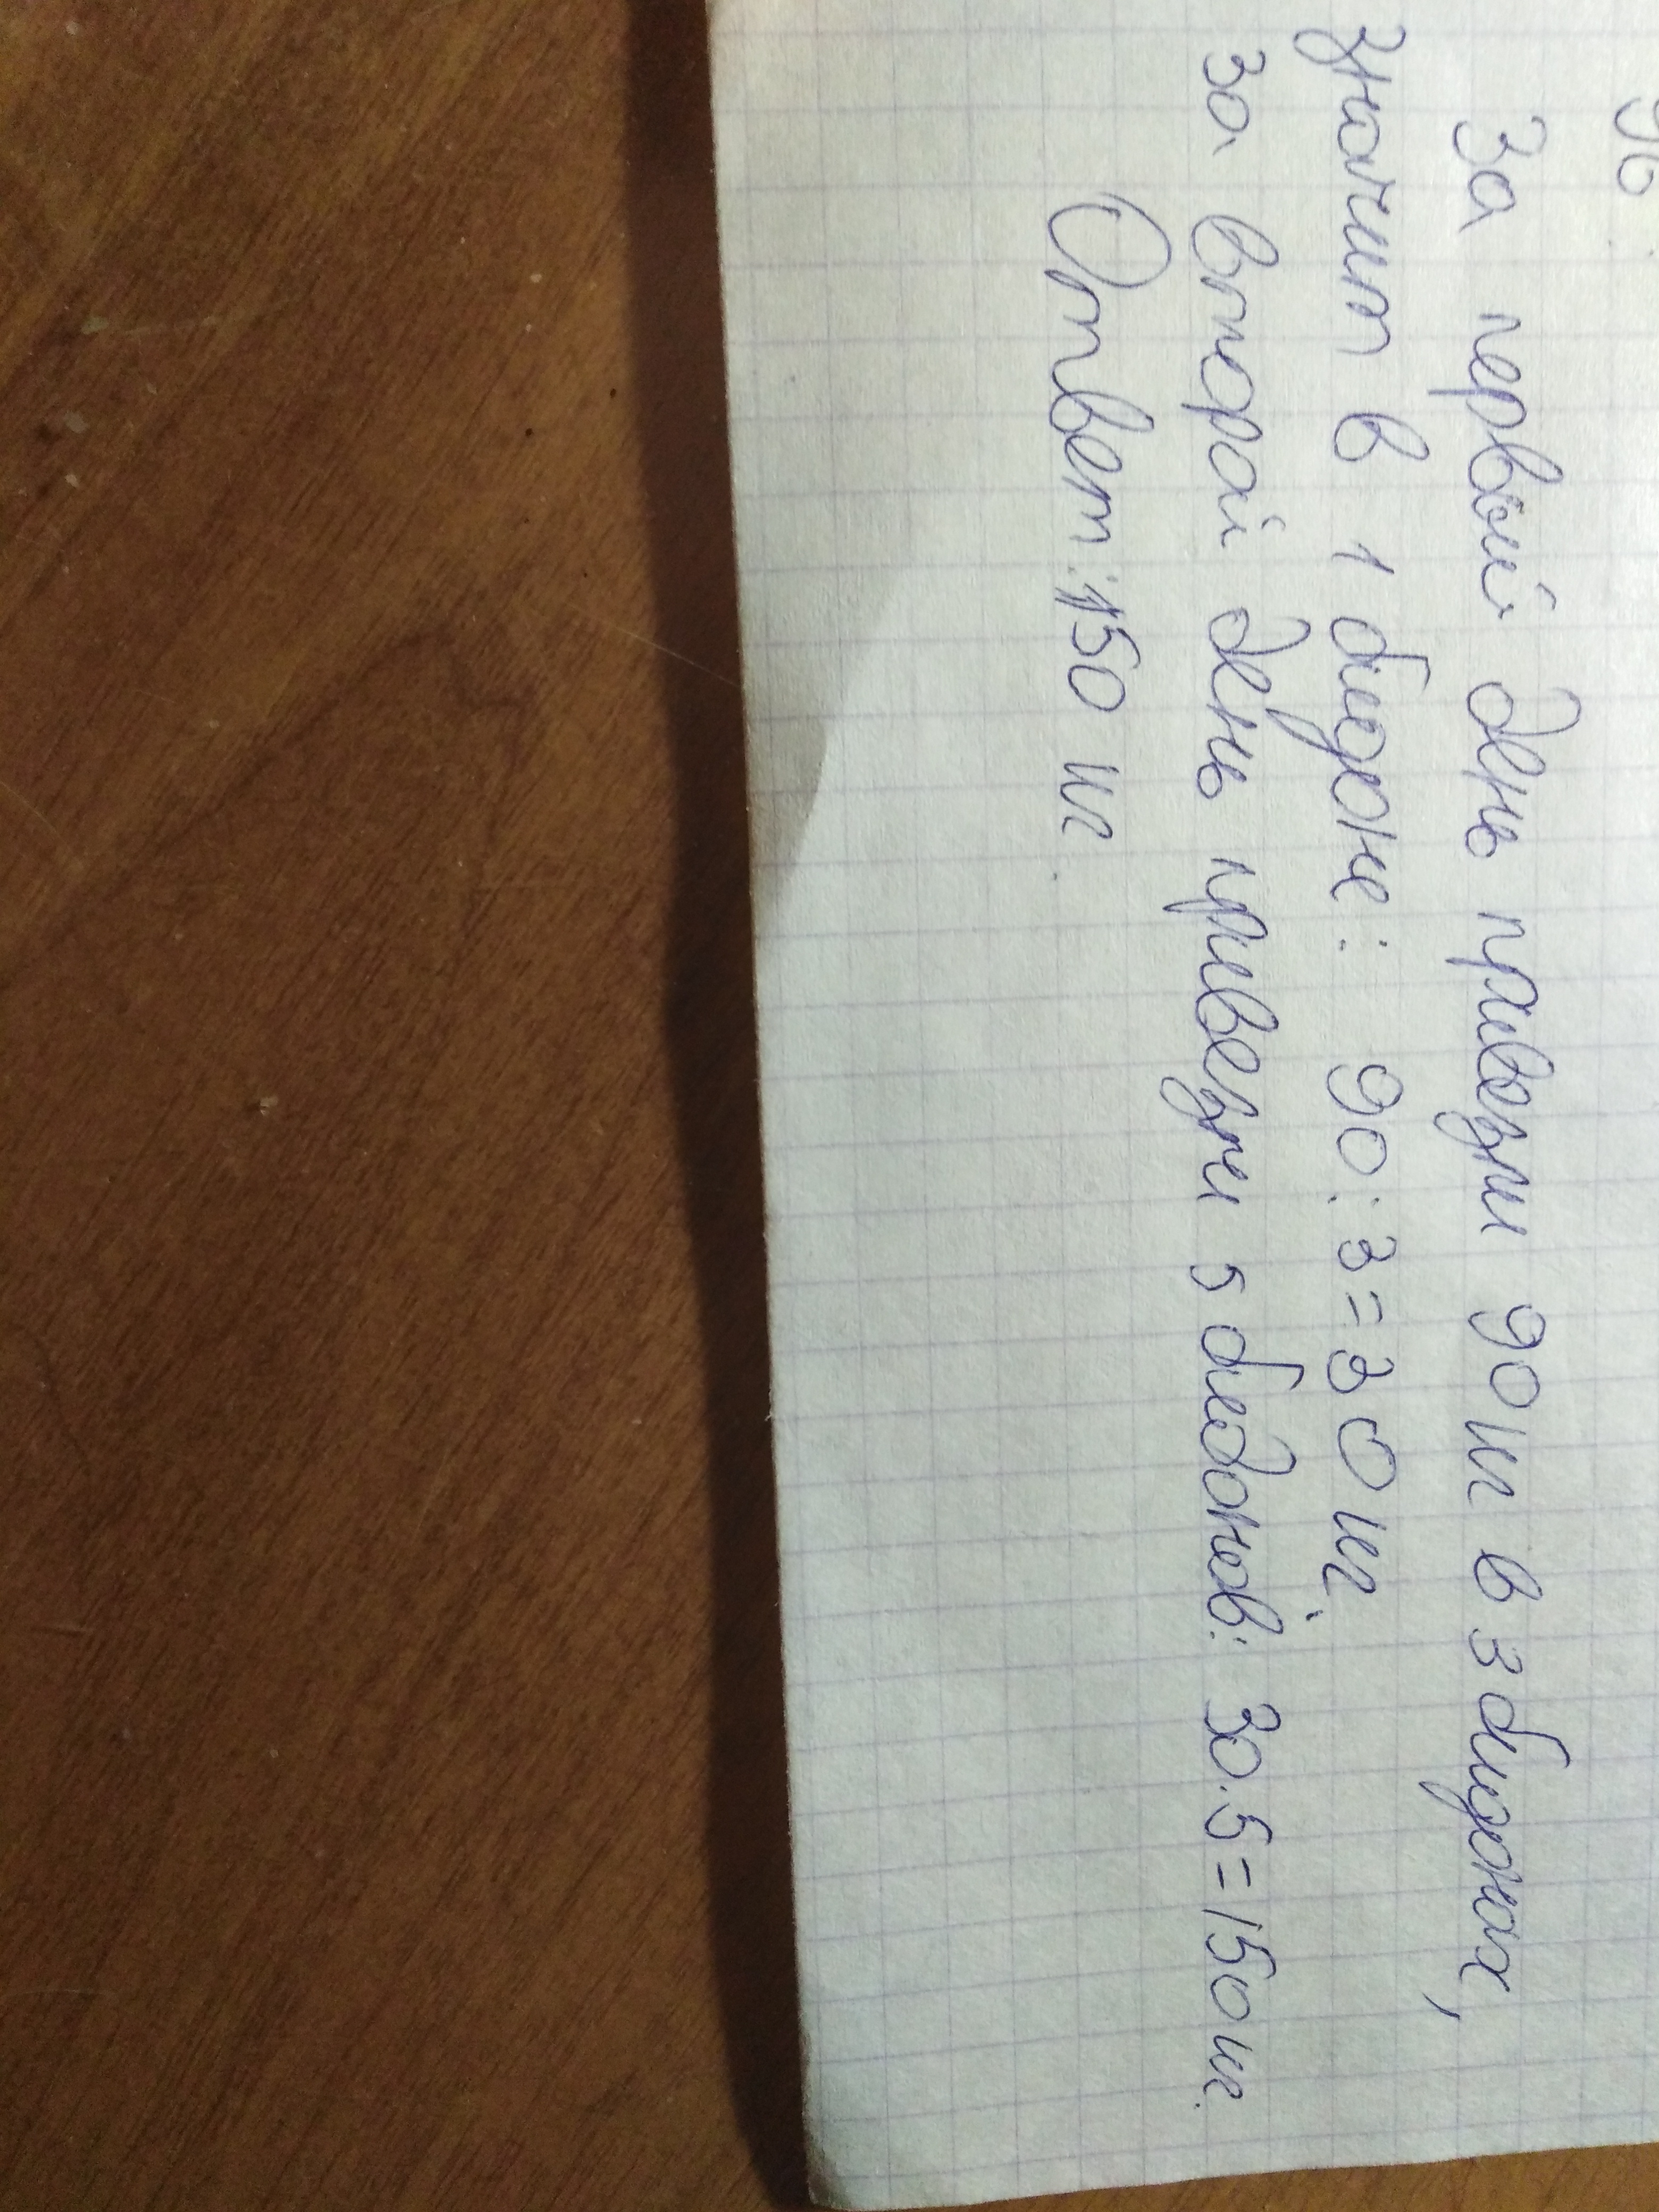 За первый день привезли 90 кг в 3 бидонах,
значит в 1 бидоне: 90:3=30 кг,
за второй день привезли 5 бидонов: 30·5=150 кг.
Ответ: 150 кг